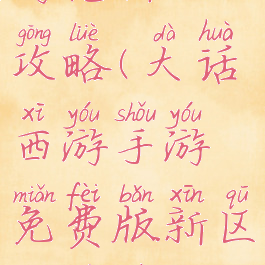 gōng lüè dà huà
攻略(大话
xī yóu shǒu yóu
西游手游
miǎn fèi bǎn xīn qū
免费版新区